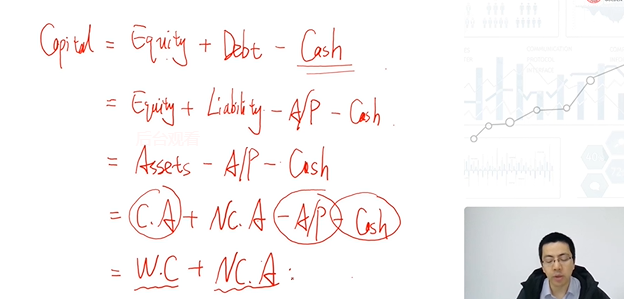 Capital = Equity + Debt - Cash
= Equity + Liability - A/P - Cash
= Assets - A/P - Cash
= C.A + NC.A - A/P - Cash
= W.C + NC.A :